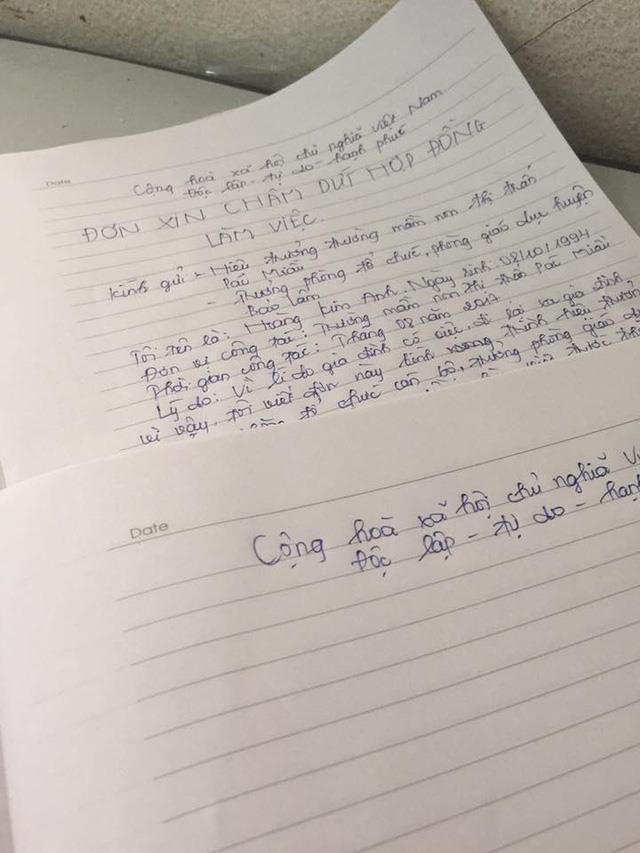 Date
Cộng hoà xã hội chủ nghĩa Việt Nam
Độc lập - tự do - hạnh phúc
ĐƠN XIN CHẤM DỨT HỢP ĐỒNG
LÀM VIỆC.
Kính gửi - Hiệu trưởng trường mầm non thị trấn
Pác Miầu
- Trưởng phòng tổ chức, phòng giáo dục huyện
Bảo Lâm
Tôi tên là: Hoàng Kim Anh. Ngày sinh: 08/10/1994
Đơn vị công tác: Trường mầm non thị trấn Pác Miầu
Thời gian công tác: Tháng 02 năm 2017
Lý do: Vì lí do gia đình có việc, đi lại xa gia đình,
vì vậy, tôi viết đơn này kính mong thành hiệu trưởng
tổ chức cán bộ, trưởng phòng giáo dục
Date
Cộng hoà xã hội chủ nghĩa V
Độc lập - tự do - hạnh